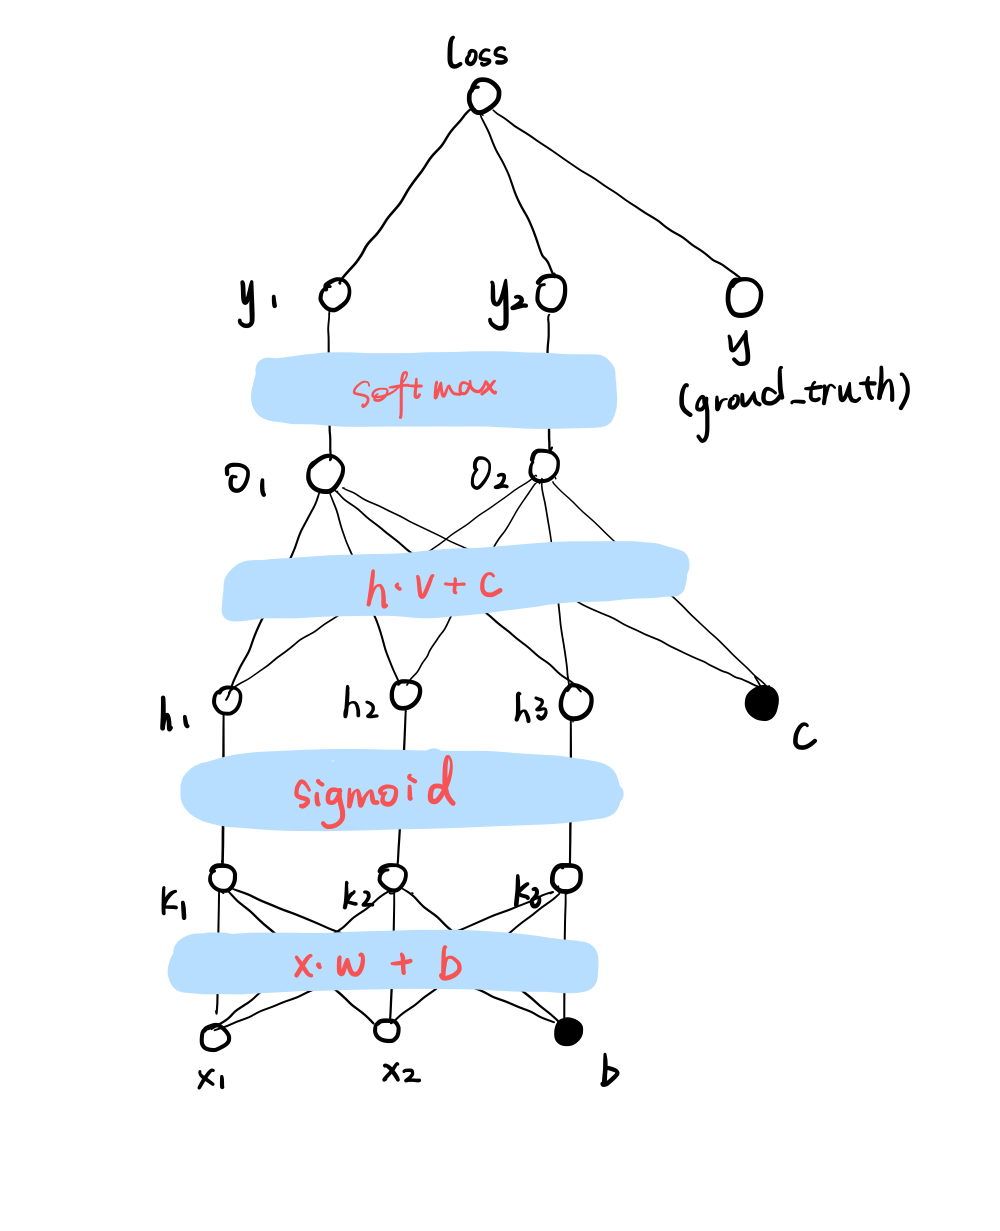 Loss
y1 y2
y
(groud_truth)
softmax
o1 o2
h·v+c
h1 h2 h3
c
sigmoid
k1 k2 k3
x·w + b
x1 x2 b